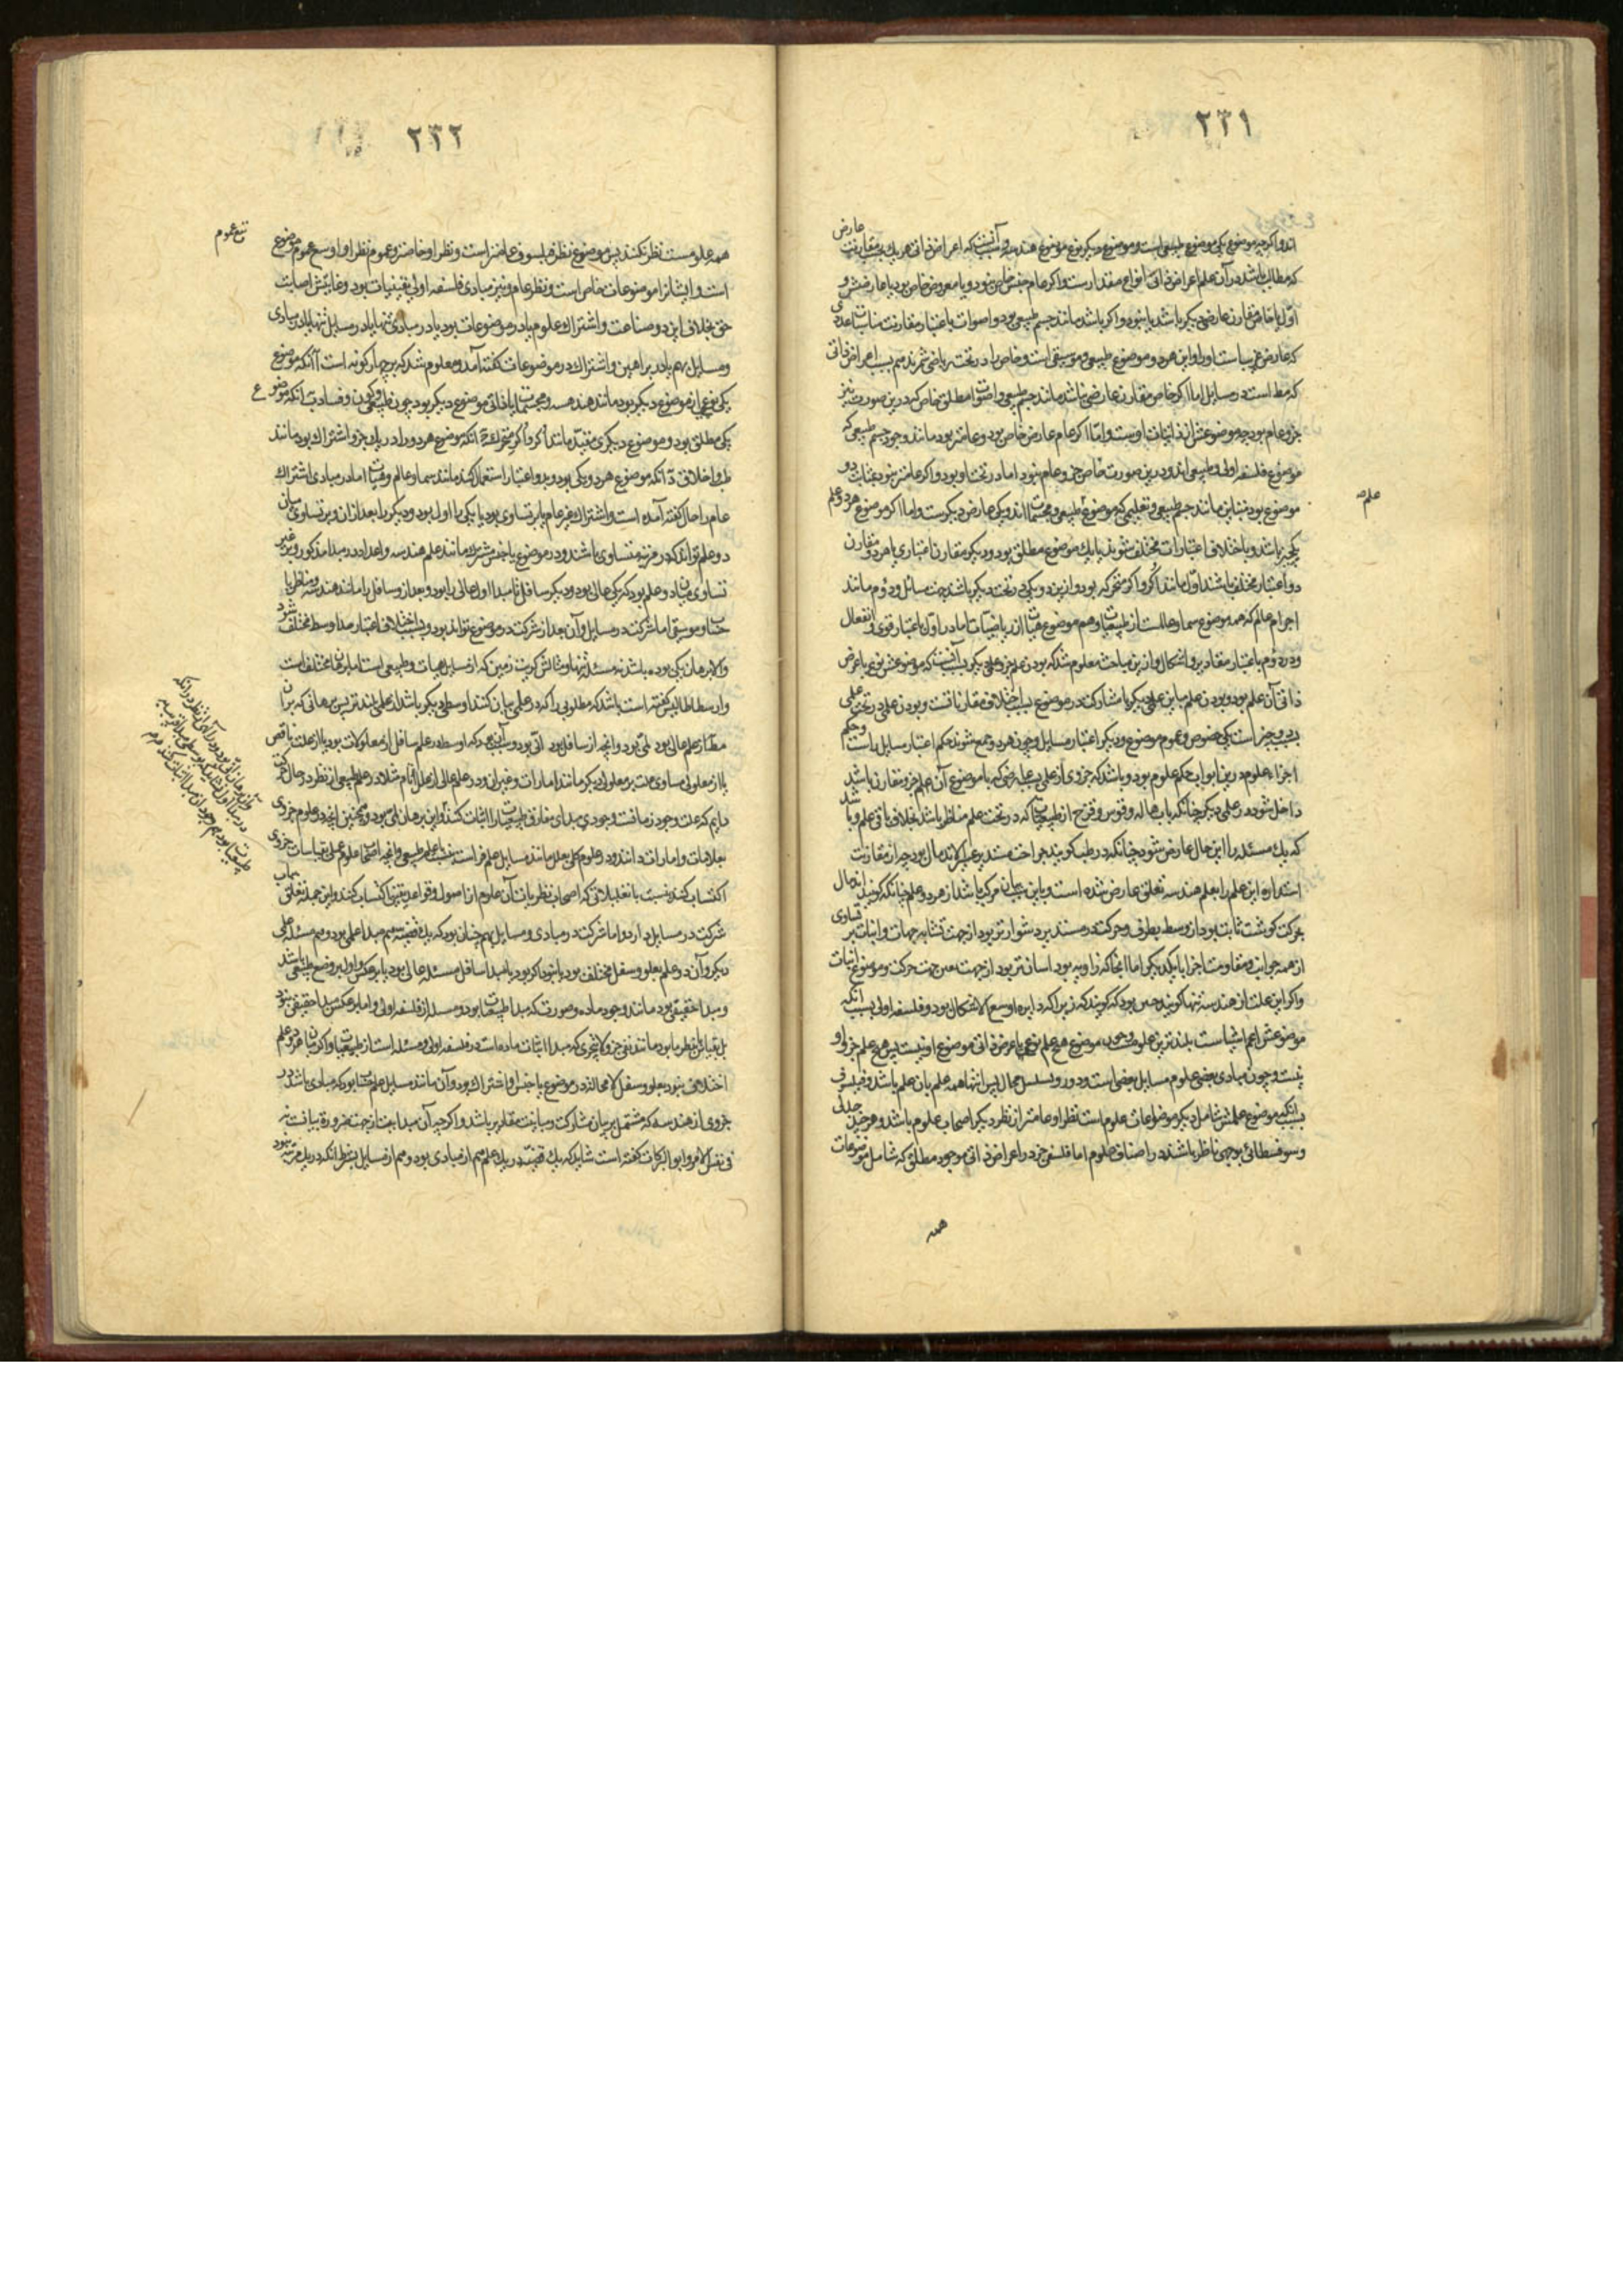 ٢٣١
اند و اگرچه موضوع یکی موضوع طبیعی است و موضوع دیگر نوع موضوع هندسه و سبب آنست که اعراض ذاتی هر یک بسبب مقارنت عارض
که مطالب باشد در آن علم اعراض ذاتی انواع مقدارست و اگر عام جنس خاص نبود و یا معروض خاص بود یا عارضش و
اول یا خاص مقارن عارضی دیگر باشد یا نبود و اگر باشد مانند جسم طبیعی بود و اصوات باعتبار مقارنت مناسبات عددی
که عارض غریب است او را و این هر دو موضوع طبیعی و موسیقی است و خاص را در تحت ریاضی شمرند هم بسبب اعراض ذاتی
که مط است در مسایل اما اگر خاص مقارن عارضی نباشد مانند جسم طبیعی و اصوات مطلق خاص که درین صورت نیز
جزو عام بود چه موضوعش از ذاتیات اوست و اما اگر عام عارض خاص بود و عامتر بود مانند وجود و جسم طبیعی که
موضوع فلسفه اولی و طبیعی‌اند و درین صورت خاص جزو عام نبود اما در تحت او بود و اگر عامتر نبود بمثابت دو
موضوع بود متباین مانند جسم طبیعی و تعلیمی که موضوع طبیعی و مجسمات‌اند و یکی عارض دیگرست و اما اگر موضوع هر دو علم
یکچیز باشد و باختلاف اعتبارات مختلف شوند یا یک موضوع مطلق بود و دیگر مقارن اعتباری یا هر دو مقارن
دو اعتبار مختلف باشند اول مانند اکر و اکر متحرکه بود و ازین دو یکی در تحت دیگر باشد بحسب مسائل و دوم مانند
اجرام عالم که همه موضوع سما و عالمست از طبیعیات و هم موضوع هیات است از ریاضیات اما در اول باعتبار قوی و انفعال
و در دوم باعتبار مقادیر و اشکال و ازین مباحث معلوم شد که بودن علم جزو علمی دیگر بسبب آنست که موضوعش نوع یا عرض
ذاتی آن علم بود و بودن علم مباین علمی دیگر با مشارکت در موضوع بسبب اختلاف مقارناتست و بودن علمی در تحت علمی
بسبب دو چیز است یکی خصوص و عموم موضوع و دیگر اعتبار مسایل و چون هر دو جمع شوند حکم اعتبار مسایل راست و حکم
اجزاء علوم درین ابواب حکم علوم بود و باشد که جزوی از علمی بسبب عارضی که با موضوع آن علم جزو مقارن باشد
داخل شود در علمی دیگر چنانکه باب هاله و قوس و قزح از طبیعیات که در تحت علم مناظر باشد بخلاف باقی علم و باشد
که یک مسئله را این حال عارض شود چنانکه در طب گویند جراحت مستدیر عسر الاندمال بود چه از مقارنت
استداره این علم را بعلم هندسه تعلقی عارض شده است و باین سبب بیان مرکب باشد از هر دو علم چنانکه گویند اندمال
بحرکت گوشت ثابت بود از وسط بطرف و حرکت در مستدیر دشوارتر بود از جهت تشابه جهات و اثبات تساوی
از همه جوانب و مقاومت اجزا با یکدیگر اما آنجا که زاویه بود آسانتر بود از جهت تعین جهت حرکت و موضع اثبات
و اگر این علت از هندسه تنها گویند چنین بود که گویند که زیرا که دایره اوسع الاشکال بود و فلسفه اولی بسبب آنکه
موضوعش اعم اشیاست بلندترین علومست و چون موضوع هیچ علم نوع یا عرض ذاتی موضوع او نیست پس هیچ علم جزو او
نیست و چون مبادی بعضی علوم مسایل بعضی است و دور و تسلسل محال پس انتها همه علم بآن علم باشد و فیلسوف
بسبب آنکه موضوع علمش شامل دیگر موضوعات علوم است نظر او عامتر از نظر دیگر اصحاب علوم باشد و هر چند جدلی
و سوفسطائی بوجهی ناظر باشند در اصناف علوم اما فلسفی جز در اعراض ذاتی موجود مطلق که شامل موضوعات
علم ص
همه
٢٣٢
همه علومست نظر نکند پس موضوع نظر فیلسوف عامتر است و نظر او خاصتر و عموم نظر او اوسع عموم موضوع
تتبع عموم
است و ایشانرا موضوعات خاص است و نظر عام و نیز مبادی فلسفه اولی یقینیات بود و غایتش اصابت
حق بخلاف این دو صناعت و اشتراک علوم یا در موضوعات بود یا در مبادی تنها یا در مسایل تنها یا در مبادی
و مسایل بهم یا در براهین و اشتراک در موضوعات گفته آمد و معلوم شد که بر چهار گونه است آ آنکه موضوع
یکی نوعی از موضوع دیگر بود مانند هندسه و مجسمات
یکی مطلق بود و موضوع دیگری مقید مانند اکر و اکر متحرک ج آنکه موضوع هر دو را در یک جزو اشتراک بود مانند
طب و اخلاق د آنکه موضوع هر دو یکی بود و بدو اعتبار استعمال کنند مانند سما و عالم و هیات اما در مبادی اشتراک
عام را حال گفته آمده است و اشتراک غیر عام یا بر تساوی بود یا یکی را اول بود و دیگر را بعد از آن و بر تساوی میان
دو علم تواند که در مرتبه متساوی باشند و در موضوع یا جنس مشترک مانند علم هندسه و اعداد در مبدا مذکور و بر غیر
تساوی میان دو علم بود که یکی عالی بود و دیگر سافل تا مبدا اول عالی را بود و بعد از و سافل را مانند هندسه و مناظر یا
حساب و موسیقی اما شرکت در مسایل و آن بعد از شرکت در موضوع تواند بود و بسبب اختلاف اعتبار مدا وسط مختلف شود
و الا برهان یکی بوده باشد نه مسئله تنها و مثالش کریت زمین که از مسایل هیات و طبیعی است اما برهان مختلف است
و ارسطاطالیس گفته است باشد که مطلوبی را که در علمی بیان کنند اوسطی دیگر باشد از علمی بلندتر پس برهانی که بر آن
مط از علم عالی بود لمی بود و آنچه از سافل بود انی بود
یا از معلولی مساوی علت بر معلولی دیگر مانند امارات و غیر آن و در علم عالی از علل تام
دایم که علت وجود زمانست و وجودی مبدای مفارق طبیعیات را اثبات کنند و این برهان لمی بود و همچنین آنچه در علوم جزوی
بعلامات و امارات دانند و در علوم کلی بعلل مانند مسایل علم فراست بنسبت با علم طبیعی و آنچه اصحاب علوم عملی بقیاسات جزوی
اکتساب کنند بنسبت با تعلیلاتی که اصحاب نظریات آن علوم از اصول و قواعد یقینی اکتساب کنند و این جمله تعلق بباب
شرکت در مسایل دارد و اما شرکت در مبادی و مسایل بهم چنان بود که یک قضیه هم مبدا علمی بود و هم مسئله علمی
دیگر و آن دو علم بعلو و سفل مختلف بود یا نبود اگر بود یا مبدا سافل مسئله عالی بود یا بر عکس و اول بر وضع طبیعی باشد
و مبدا حقیقی بود مانند وجود ماده و صورت که مبدا طبیعیات بود و مسئله از فلسفه اولی و اما بر عکس مبدا حقیقی نبود
بل بقیاس با نظر ما بود مانند نفی جزو لا یتجزی که مبدا اثبات ماده است در فلسفه اولی و مسئله است از طبیعیات و اگر میان هر دو علم
اختلاف نبود بعلو و سفل لا محاله در موضوع یا جنس او اشتراک بود و آن مانند مسایل علم حساب بود که مبادی باشد در
جزوی از هندسه که مشتمل بر بیان مشارکت و مباینت مقادیر باشد و اگرچه آن مبداییت از جهت ضرورة بیانست نه
فی نفس الامر و ابو البرکات گفته است شاید که یک قضیه در یک علم هم از مبادی بود و هم از مسایل بشرط آنکه در یک مرتبه نبود